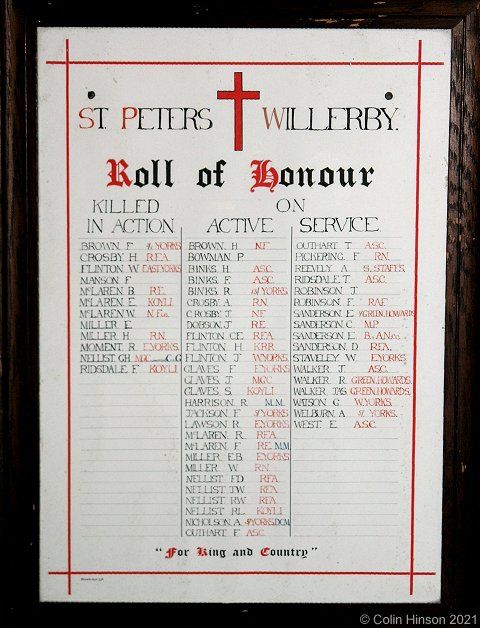 ST. PETERS WILLERBY.
Roll of Honour
KILLED
IN ACTION
BROWN. F 4/ YORKS
CROSBY H. R.F.A.
FLINTON. W. EAST YORKS
MANSON. F
McLAREN. B. R.E.
McLAREN. E. KOYLI
McLAREN W.
MILLER. E
MILLER. H. R.N.
MOMENT. R. E.YORKS.
NELLIST. G.H. M.G.C.
RIDSDALE. F. KOYLI
ON
ACTIVE SERVICE
BROWN. H. N.F.
BOWMAN. P.
BINKS. H. A.S.C.
BINKS. F. A.S.C.
BINKS. R. YORKS
CROSBY. A. R.N.
CROSBY. J. N.F.
DOBSON. J. R.E.
FLINTON C.E. R.F.A.
FLINTON. H. K.R.R.
FLINTON. J. W.YORKS
GLAVES. F. E.YORKS
GLAVES. J. M.G.C.
GLAVES. S. KOYLI
HARRISON. R. M.M.
JACKSON. F. YORKS
LAWSON. R. E.YORKS
McLAREN. R. R.F.A.
McLAREN. F. R.E. M.M.
MILLER. E.B. E.YORKS
MILLER W. R.N.
NELLIST. F.D. R.F.A.
NELLIST. J.W. R.F.A.
NELLIST. R.W. R.F.A.
NELLIST. R.L. KOYLI
NICHOLSON. A. YORKS. D.C.M.
OUTHART. F. A.S.C.
OUTHART. T. A.S.C.
PICKERING. F. R.N.
REEVELY. A. S. STAFFS.
RIDSDALE. T. A.S.C.
ROBINSON. J.
ROBINSON. F. R.A.F.
SANDERSON. E. GREEN HOWARDS
SANDERSON. C. M.P.
SANDERSON. E.
SANDERSON. D. R.F.A.
STAVELEY. W. E.YORKS.
WALKER. J. A.S.C.
WALKER. R. GREEN HOWARDS.
WALKER. JAS. GREEN HOWARDS.
WATSON. G. W.YORKS.
WELBURN. A. YORKS.
WEST. E. A.S.C.
"For King and Country"
© Colin Hinson 2021